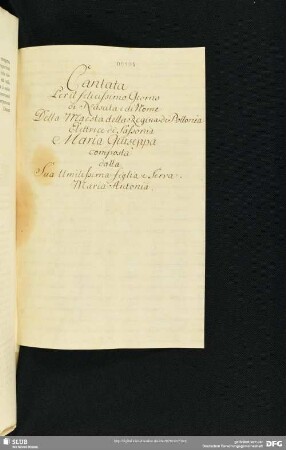 Cantata
Per il felicissimo Giorno
di Nascita e di Nome
Della Maestà della Regina di Pollonia
Elettrice di Sassonia
e Maria Giuseppa
composta
dalla
Sua Umilissima figlia e Serva
Maria Antonia
SLUB
DFG